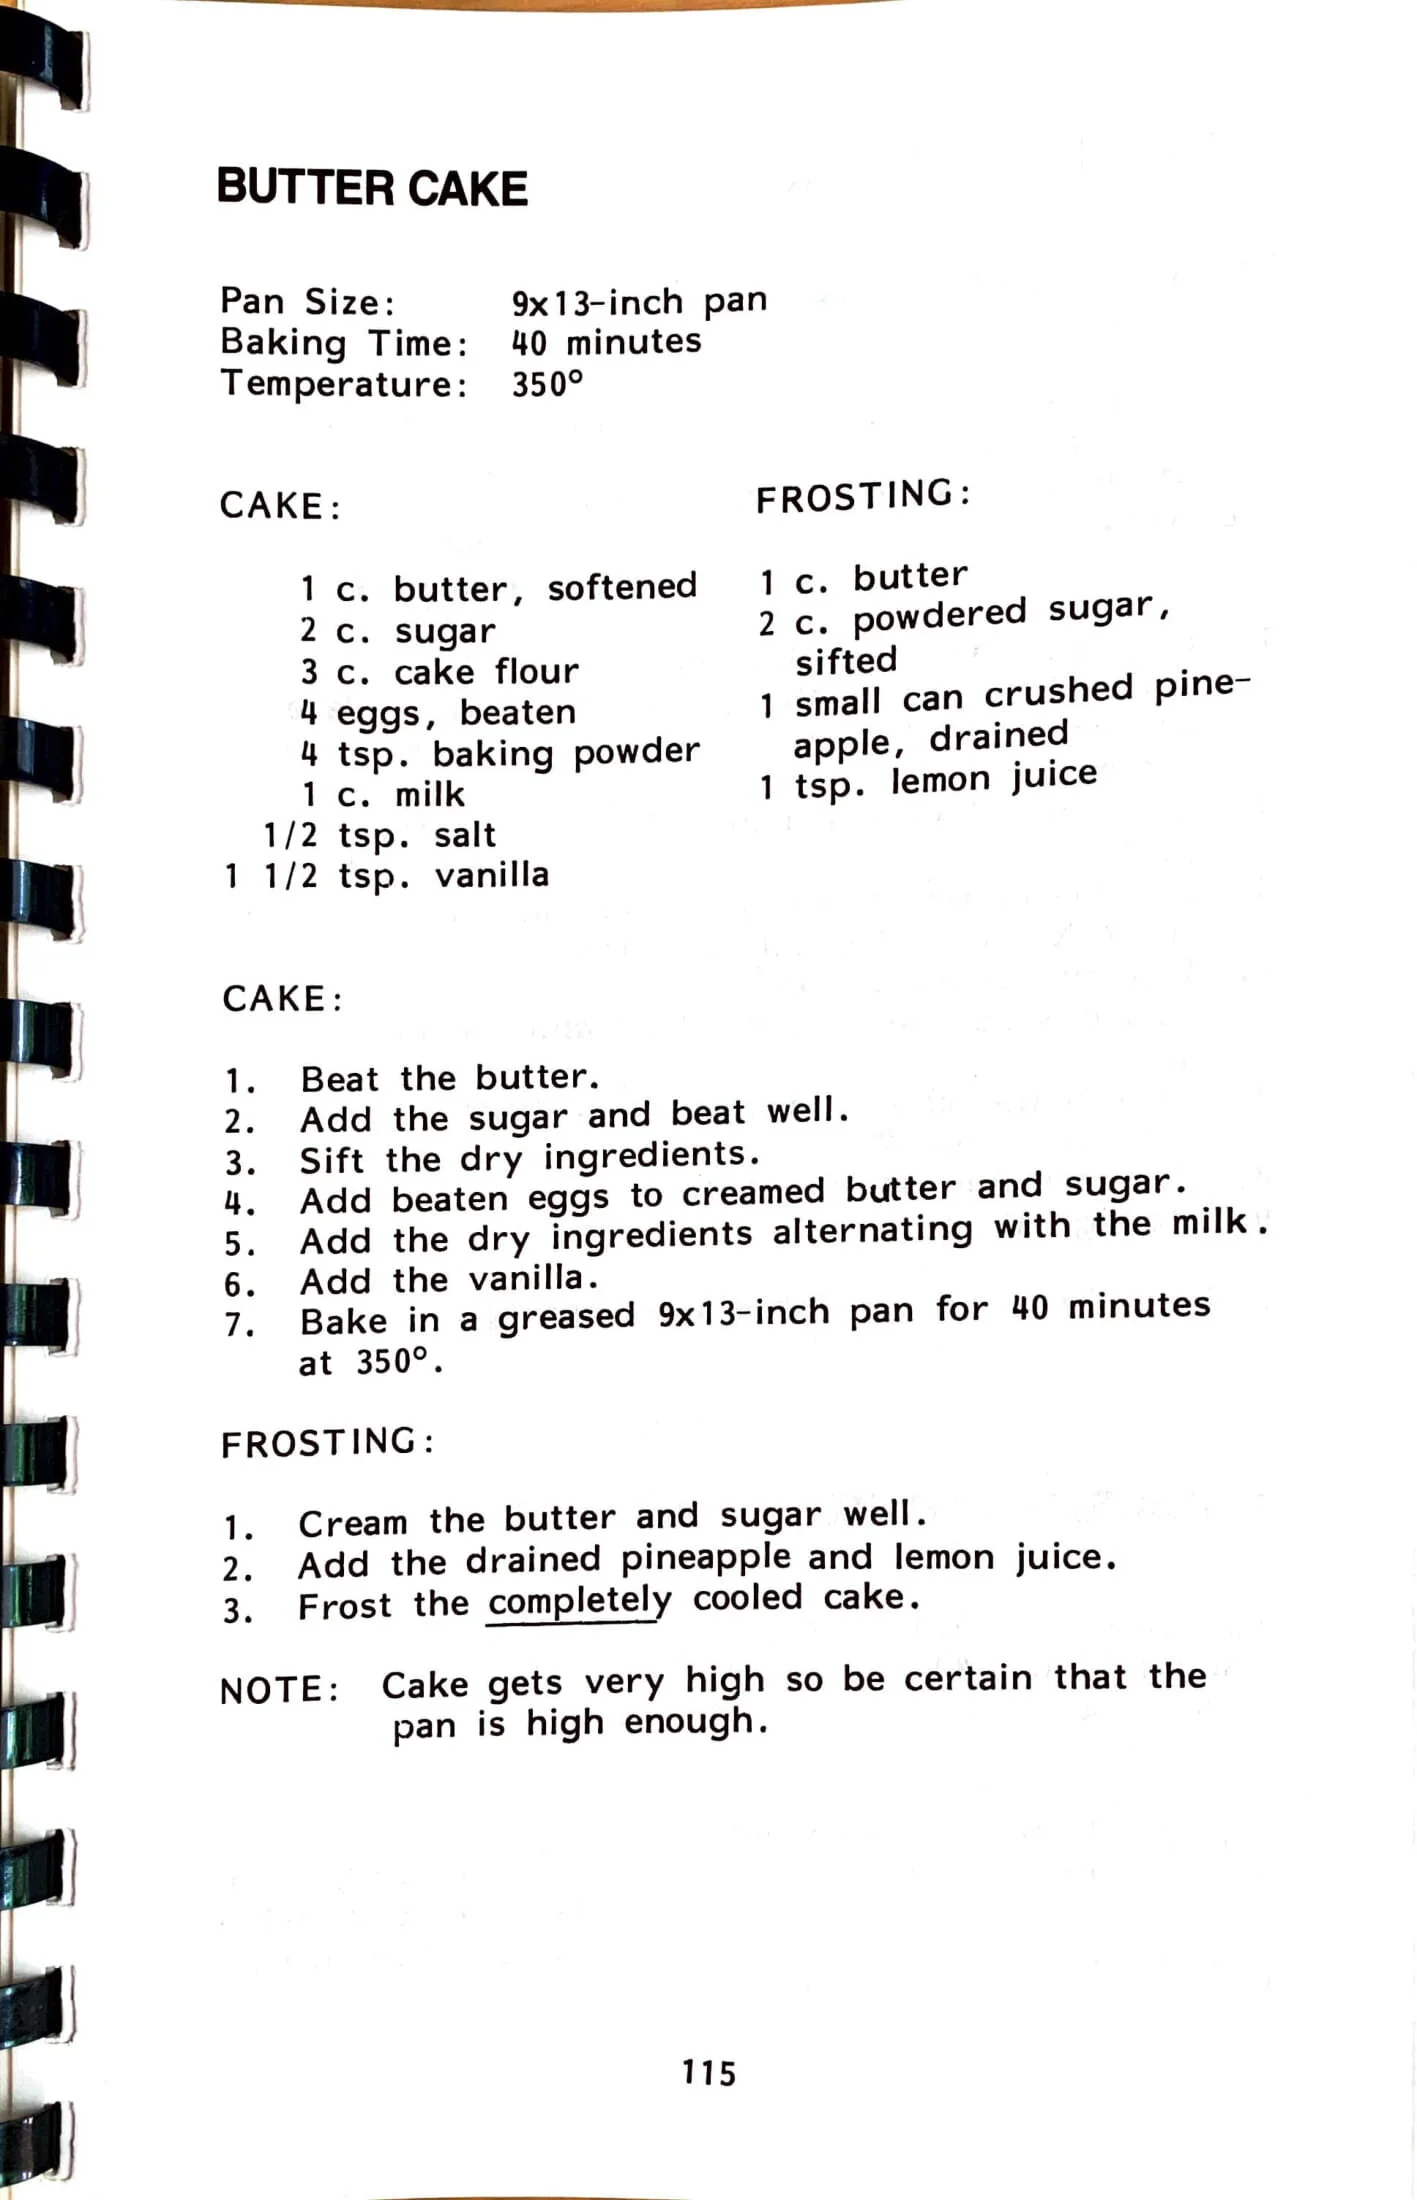 BUTTER CAKE
Pan Size: 9x13-inch pan
Baking Time: 40 minutes
Temperature: 350°
CAKE:
1 c. butter, softened
2 c. sugar
3 c. cake flour
4 eggs, beaten
4 tsp. baking powder
1 c. milk
1/2 tsp. salt
1 1/2 tsp. vanilla
FROSTING:
1 c. butter
2 c. powdered sugar,
sifted
1 small can crushed pine-
apple, drained
1 tsp. lemon juice
CAKE:
1. Beat the butter.
2. Add the sugar and beat well.
3. Sift the dry ingredients.
4. Add beaten eggs to creamed butter and sugar.
5. Add the dry ingredients alternating with the milk.
6. Add the vanilla.
7. Bake in a greased 9x13-inch pan for 40 minutes
at 350°.
FROSTING:
1. Cream the butter and sugar well.
2. Add the drained pineapple and lemon juice.
3. Frost the completely cooled cake.
NOTE: Cake gets very high so be certain that the
pan is high enough.
115